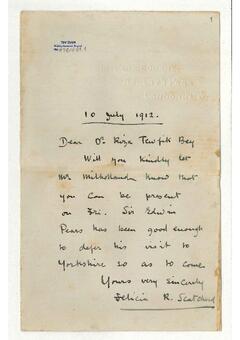 1
10 July 1912.
Dear Dr Riza Tewfik Bey
Will you kindly let
Mr Milholland know that
you can be present
on Fri. Sir Edwin
Pears has been good enough
to defer his visit to
Yorkshire so as to come
Yours very sincerely
Felicia R. Scatcherd